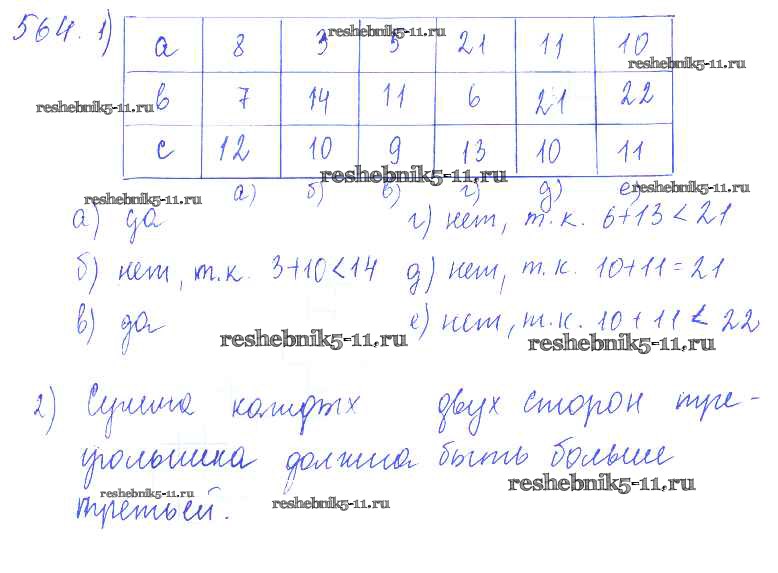 564. 1)
а 8 3 5 21 11 10
reshebnik5-11.ru
reshebnik5-11.ru
в 7 14 11 6 21 22
reshebnik5-11.ru
с 12 10 9 13 10 11
reshebnik5-11.ru
а) б) в) г) д) е)
reshebnik5-11.ru
reshebnik5-11.ru
а) да г) нет, т.к. 6+13<21
б) нет, т.к. 3+10<14 д) нет, т.к. 10+11=21
в) да е) нет, т.к. 10+11<22
reshebnik5-11.ru
reshebnik5-11.ru
2) Сумма каждых двух сторон тре-
угольника должна быть больше
третьей.
reshebnik5-11.ru
reshebnik5-11.ru
reshebnik5-11.ru